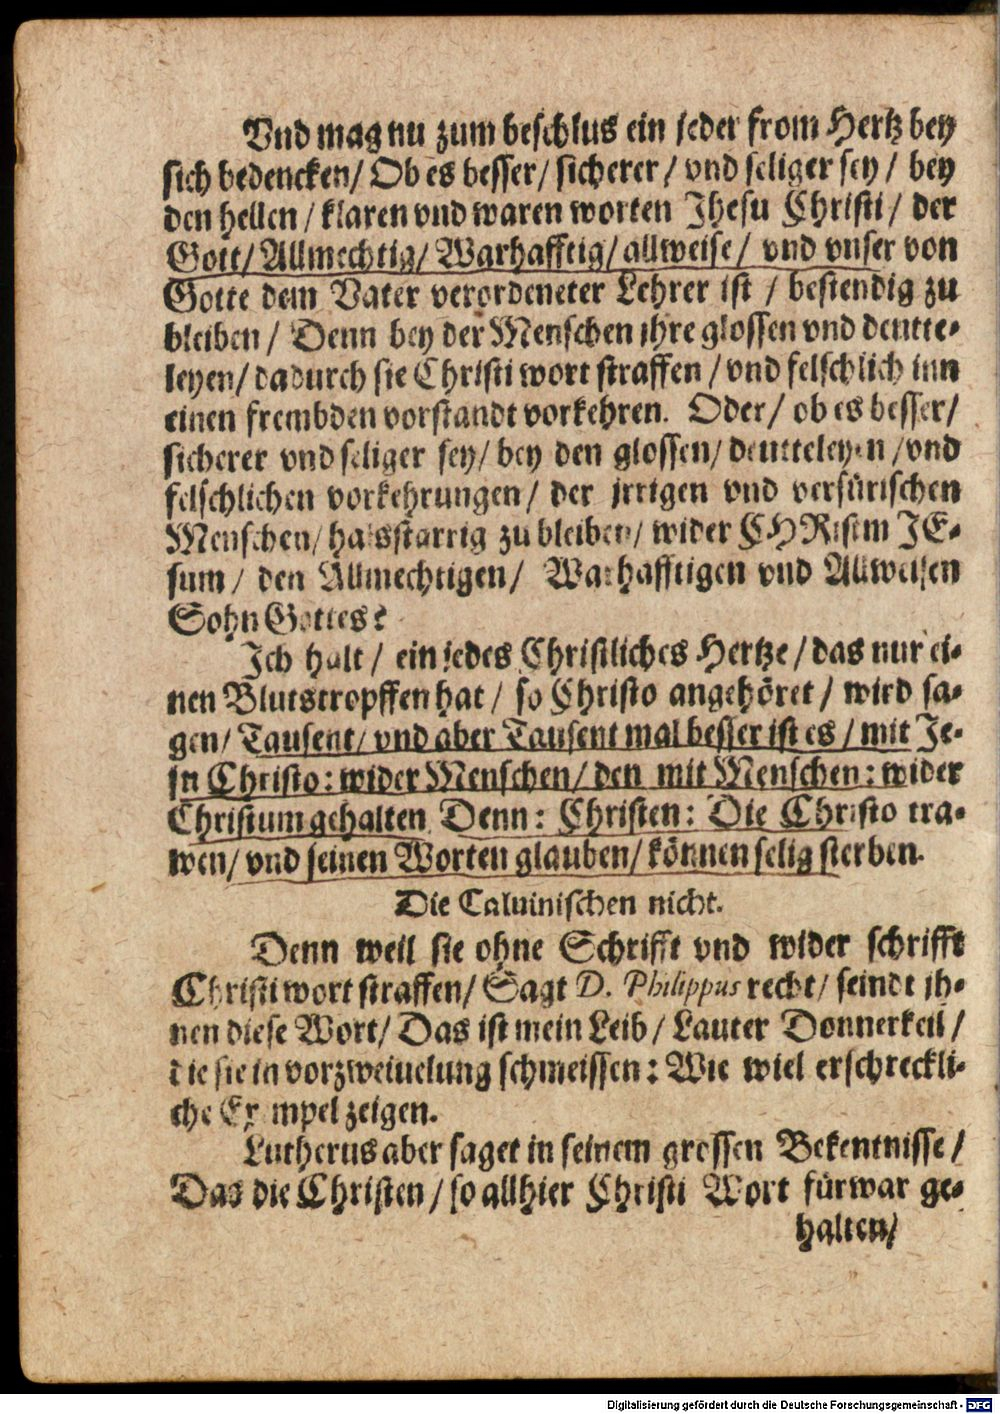 Vnd mag nu zum beschlus ein jeder from Hertz bey
sich bedencken/ Ob es besser/ sicherer/ vnd seliger sey/ bey
den hellen/ klaren vnd waren worten Jhesu Christi/ der
Gott/ Allmechtig/ Warhafftig/ allweise/ vnd vnser von
Gotte dem Vater verordeneter Lehrer ist/ bestendig zu
bleiben/ Denn bey der Menschen jhre glossen vnd deutte-
leyen/ dadurch sie Christi wort straffen/ vnd felschlich inn
einen frembden vorstandt vorkehren. Oder/ ob es besser/
sicherer vnd seliger sey/ bey den glossen/ deutteleyen/ vnd
felschlichen vorkehrungen/ der jrrigen vnd verfürischen
Menschen/ halsstarrig zu bleiben/ wider CHRistm JE-
sum/ den Allmechtigen/ Warhafftigen vnd Allweisen
Sohn Gottes?
Jch halt/ ein jedes Christliches Hertze/ das nur ei-
nen Blutstropffen hat/ so Christo angehöret/ wird sa-
gen/ Tausent/ vnd aber Tausent mal besser ist es/ mit Je-
su Christo: wider Menschen/ den mit Menschen: wider
Christum gehalten Denn: Christen: Die Christo tra-
wen/ vnd seinen Worten glauben/ können selig sterben.
Die Caluinischen nicht.
Denn weil sie ohne Schrifft vnd wider schrifft
Christi wort straffen/ Sagt D. Philippus recht/ seindt jh-
nen diese Wort/ Das ist mein Leib/ Lauter Donnerkeil/
die sie in vorzweiuelung schmeissen: Wie wiel erschreckli-
che Exempel zeigen.
Lutherus aber saget in seinem grossen Bekentnisse/
Das die Christen/ so allhier Christi Wort fürwar ge-
halten/
Digitalisierung gefördert durch die Deutsche Forschungsgemeinschaft - DFG